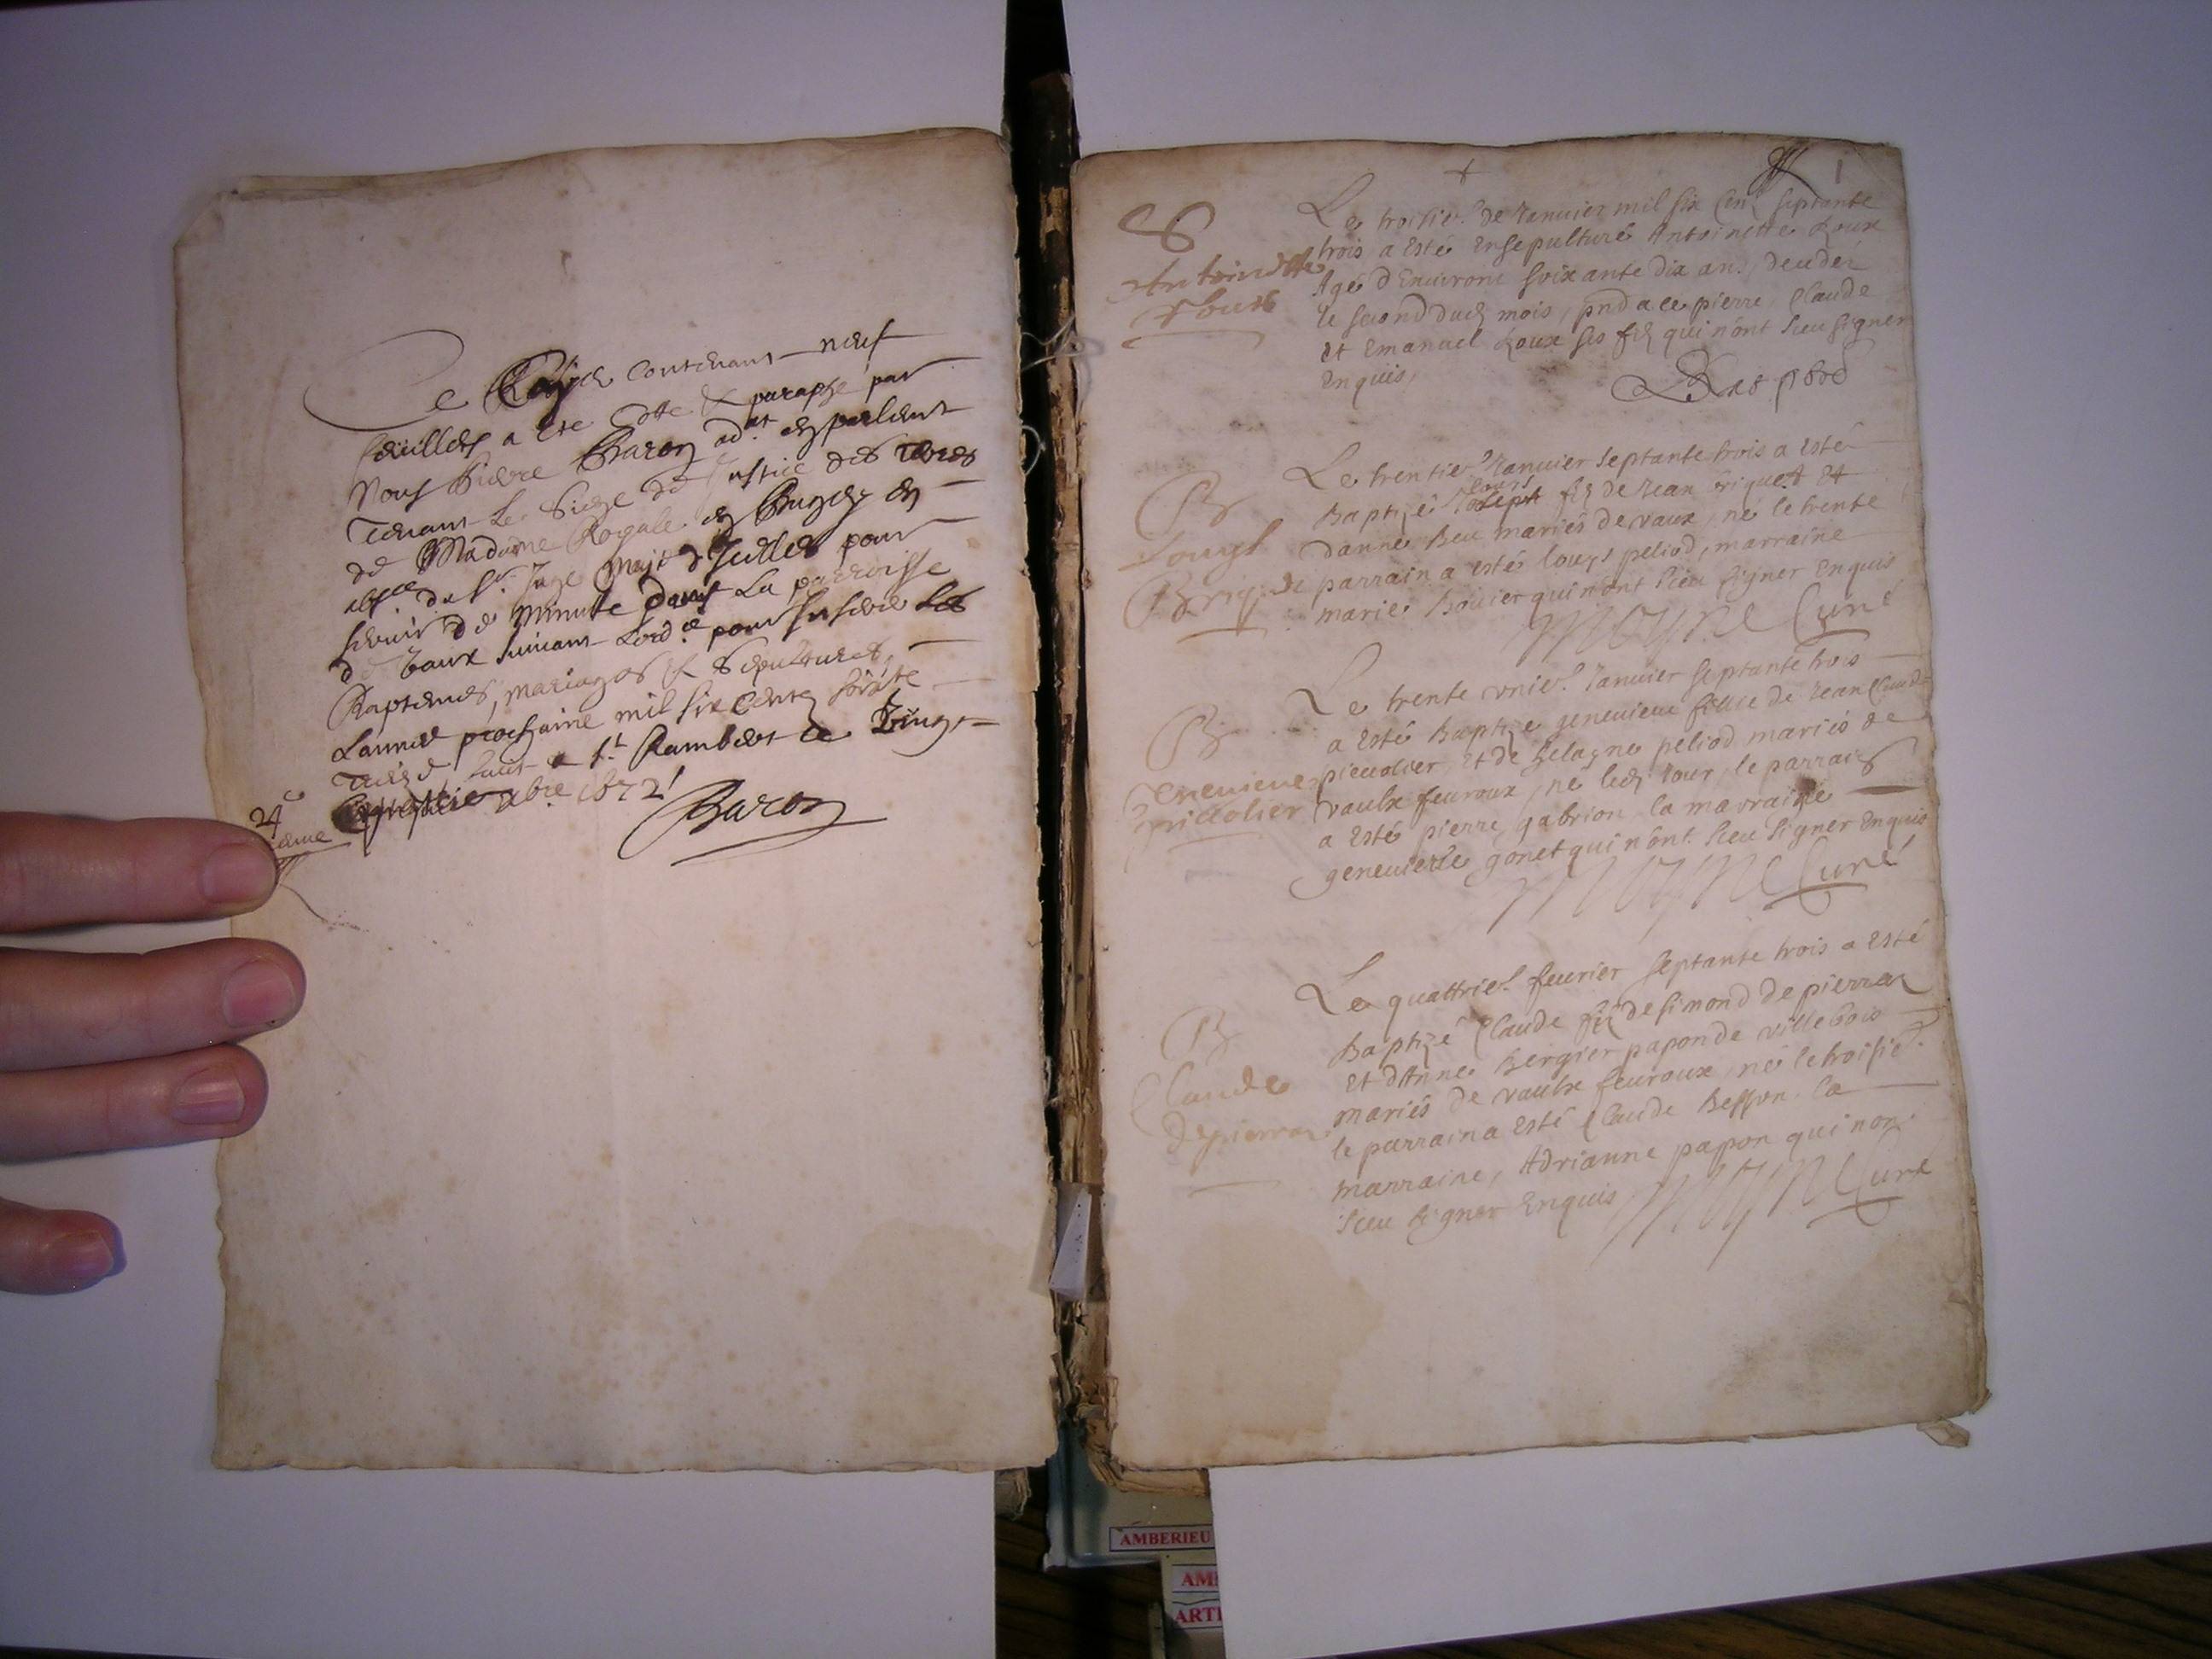 Ce Cayer contenant neuf
feuillets a ete cotte & paraphe par
Nous Pierre Baron ad.at en parlement
Tenant Le Siege de Justice des terres
de Madame Royale en Bugey en
abs.ce du S.r Juge Maje d'Icelles pour
servir de Minutte dans La parroisse
de Vaux suivant Lord.ce pour Inserer Les
Baptemes, mariages & Sepultures,
Lannee prochaine mil six Cents soixte
Treize, faict a S.t Rambert Le Vingt
24e xbre 1672
eme
Baron
1
S
Antoinette
Roux
Le troisie.e de Ianuier mil six Cent septante
trois a esté ensepulturé Antoinette Roux
Agé d'Enuiront soixante dix an.,
le second dud. mois, pnd a ce pierre, Claude
et Emanuel Roux ses fiz qui n'ont sceu signer
Enquis,
B
Louys
Brig de
Le trentie.e Ianuier septante trois a Esté
Baptizé louys fiz de Iean briguet Et
danne Beu mariés de vaux, né le trente
parrain a estés louys peliod, marraine
marie Bouier qui n'ont sceu signer Enquis
Moyne Curé
B
Geneuieue
pieuolier
Le trente vnie.e Ianuier septante trois
a Esté Baptize geneuieue fillie de Iean Claude
pieuolier, et de Pelagne peliod mariés de
vaulx feuroux, né led. Iour, le parrain
a Esté pierre gabrion, la marraine
geneuiefue gonet qui n'ont sceu signer Enquis
Moyne Curé
B
Claude
depierraz
Le quattrie.e feurier septante trois a Esté
Baptizé Claude fiz de simond de pierraz
Et d'Anne Bergier papon de villebois
mariés de vaulx feuroux, né le troisie.e
le parrain a Esté Claude Besson. la
marraine, Adrianne papon qui n'on.
sceu signer Enquis
Moyne Curé
AMBERIEU
AM
ARTE